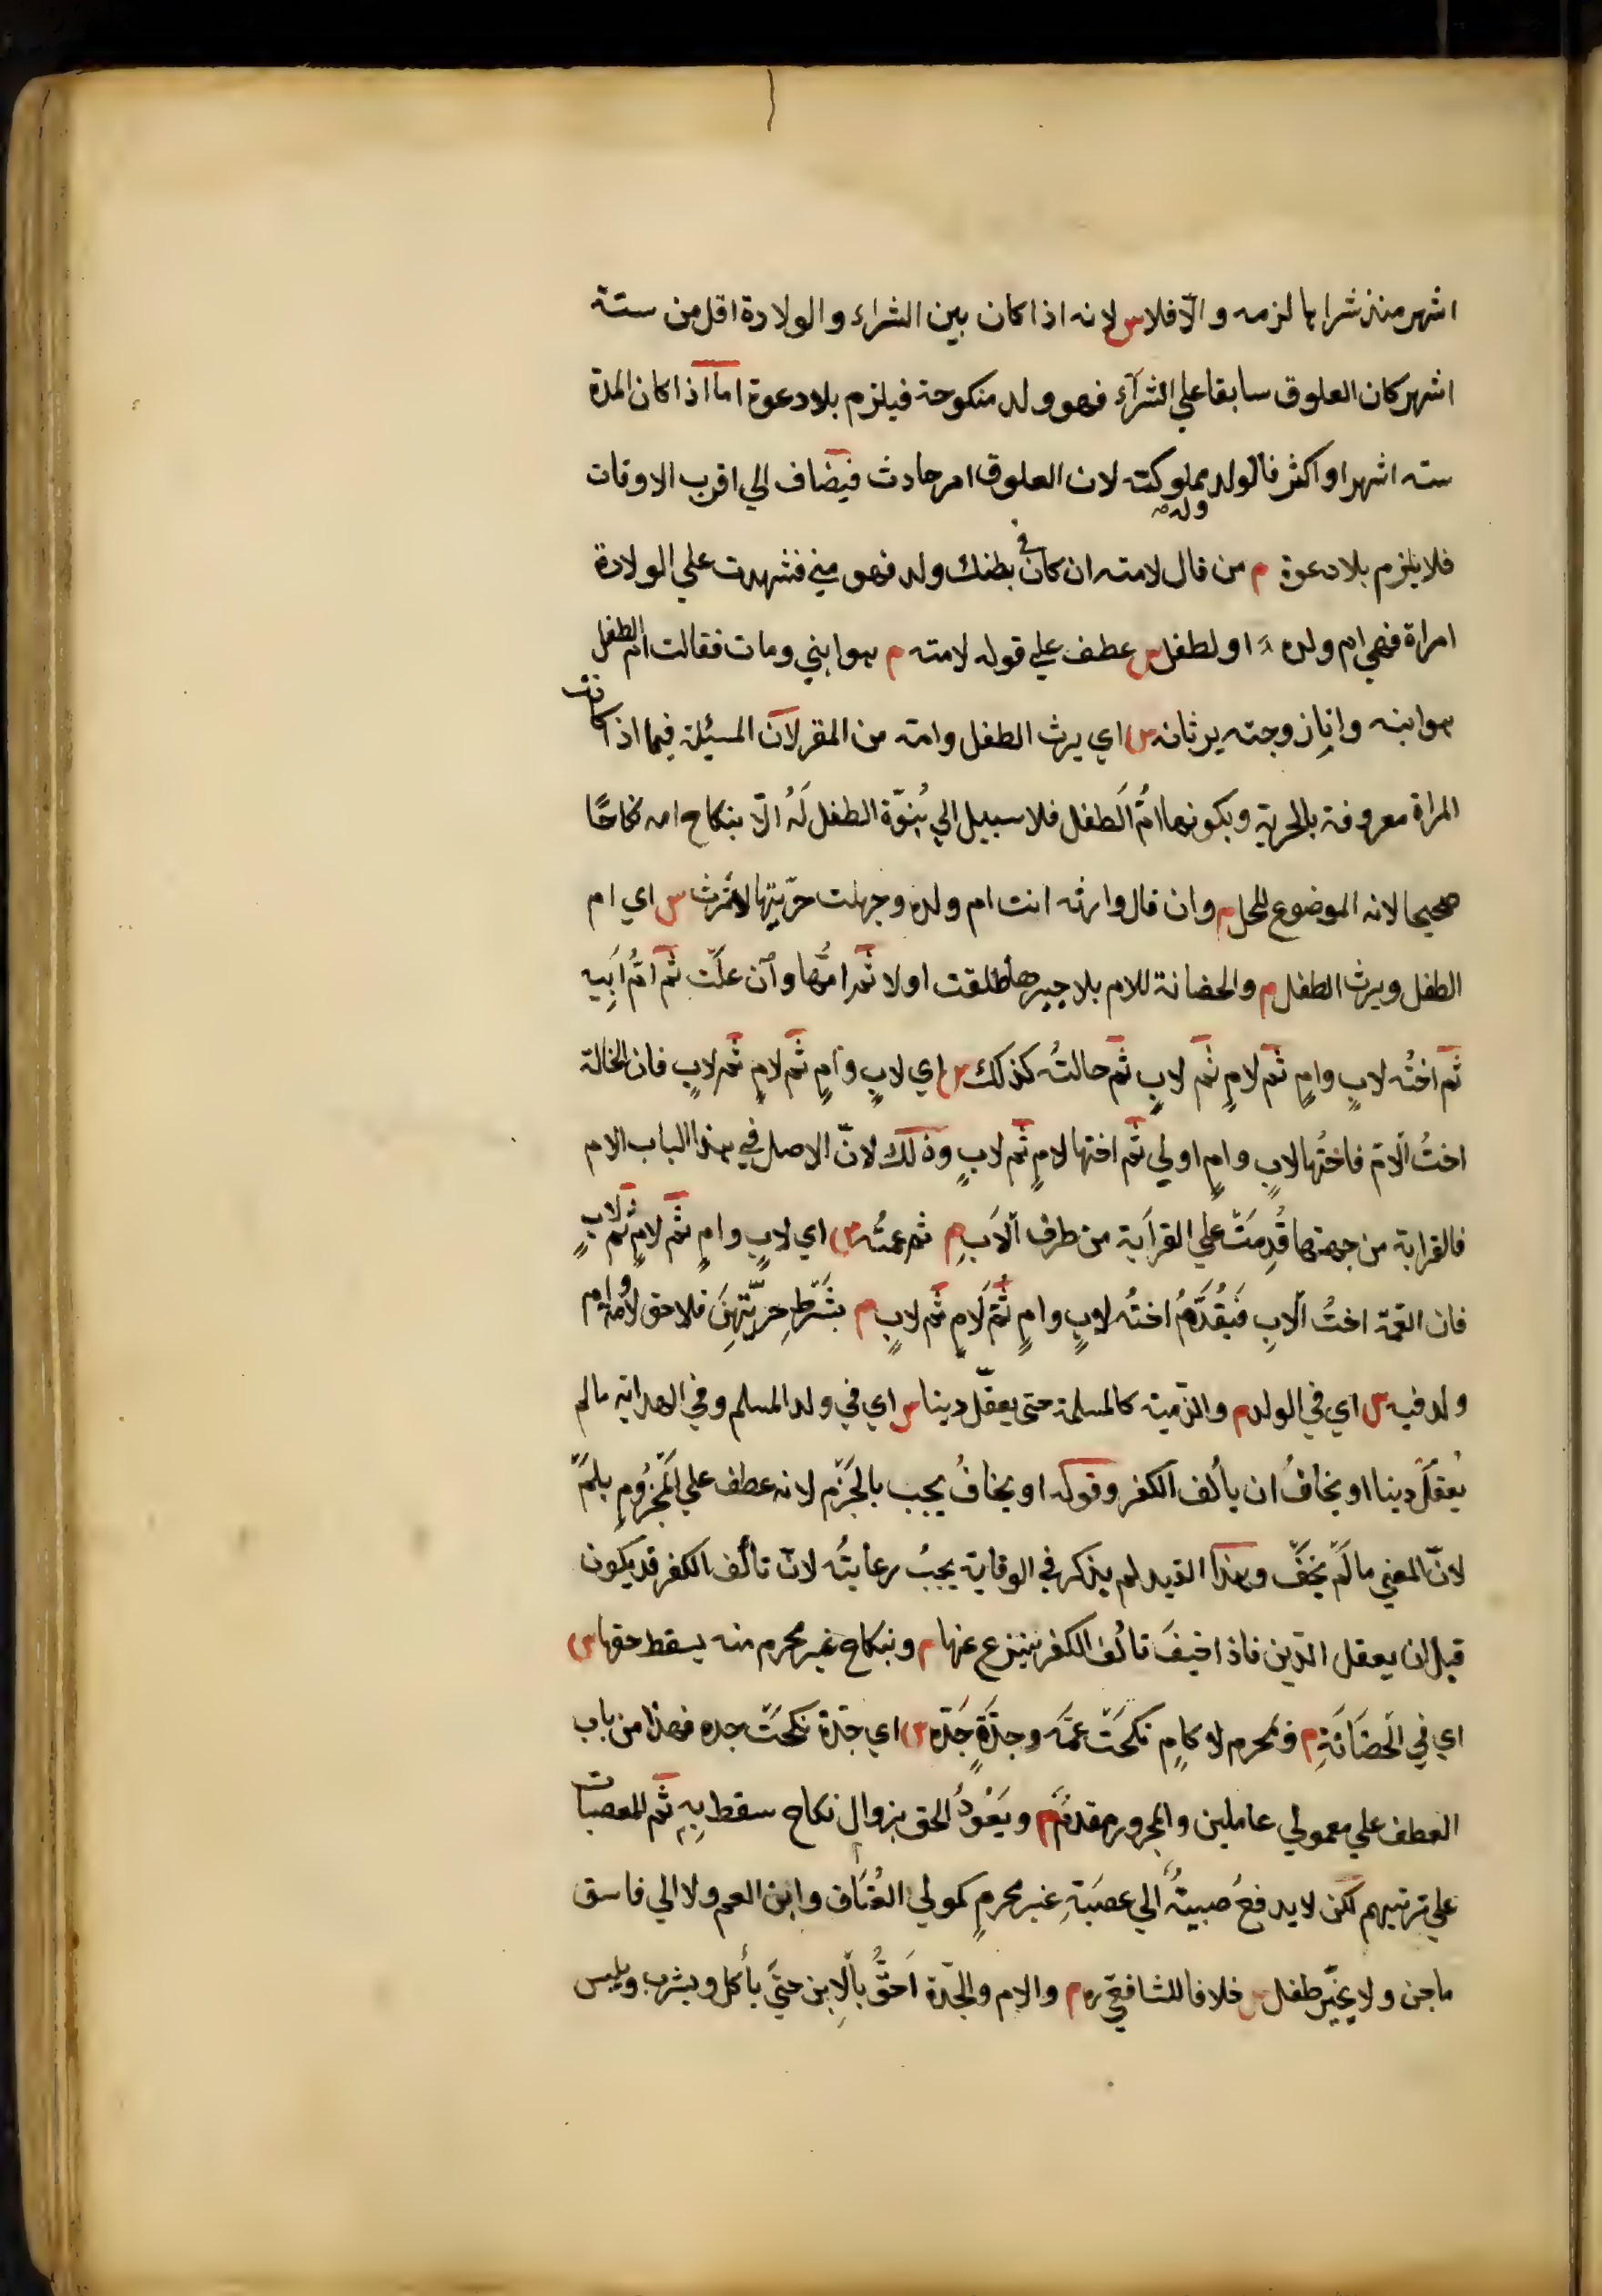 اشهر منذ شرايها لزمه والّا فلا س لانه اذا كان بين الشراء والولادة اقل من ستة
اشهر كان العلوق سابقا علي الشرآء فهو ولد منكوحة فيلزم بلا دعوة امّا اذا كان المدة
سته اشهر او اكثر فالولد ولد مملوكته لان العلوق امر حادث فيضاف الي اقرب الاوقات
فلا يلزم بلا دعوة م من قال لامته ان كان في بطنك ولد فهو مني فشهدت علي الولادة
امراة فهي ام ولده او لطفل س عطف علي قوله لامته م هو ابني ومات فقالت ام الطفل
هو ابنه وانا زوجته يرثانه س اي يرث الطفل وامه من المقر لان المسئلة فيما اذا كانت
المراة معروفة بالحرية وبكونها امُّ الَطفل فلا سبيل الي بُنوّة الطفل لَهُ الّا بنكاح امه نكاحًا
صحيحا لانه الموضوع للحل م وان قال وارثه انت ام ولده وجهلت حرّيتها لا ترث س اي ام
الطفل ويرث الطفل م والحضانة للام بلا جبرها طلقت او لا ثم امُّها وان علَت ثم امُّ ابَيه
ثم اختُه لابٍ وامٍ ثم لامٍ ثم لابٍ ثم خالتُه كذلك س اي لابٍ وامٍ ثم لامٍ ثم لابٍ فان الخالة
اختُ الامّ فاختُها لابٍ وامٍ اولي ثم اختها لامٍ ثم لابٍ وذلك لانّ الاصل في هذا الباب الام
فالقرابة من جهتها قُدِمَتْ علي القرابَة من طرف الاَبِ م ثم عمتُه س اي لابٍ وامٍ ثم لامٍ ثم لابٍ
فان العَمّة اختُ الابِ فَيُقُدَّمُ اختُه لابٍ وامٍ ثُمّ لَامٍ ثم لابٍ م بشَرطِ حرّيّتِهِنَ فلا حق لامة وام
ولد فيه س اي في الولد م والذّمية كالمسلمة حتي يعقل دينا س اي في ولد المسلم وفي الهداية ما لم
يُعقَلْ دينا او يخافُ ان يألف الكفر وقوله او يخافُ يجب بالجَزْم لانه عطف علي المَجْزُومِ بلَمْ
لانّ المعني ما لَمْ يخَفْ وهذا القيد لم يذكر في الوقاية يجبُ رعايتُه لانّ تألّف الكفر قد يكون
قبل ان يعقل الدّين فاذا خيفَ تألُف الكفر ينزع عنها م وبنكاح غير محرم منه يسقط حقها س
اي في الحَضَانَةِ م وفي محرم لا كامٍ نكحَتْ عمَّه وجدَّةٍ جَدّه س اي جدّة نكحَتْ جده فهذا من باب
العطف علي معمولي عاملين والمجرور مقدمٌ م ويَعُودُ الحق بزوال نكاح سقط بِهِ ثم للعصبات
علي ترتيبهم لكن لا يدفعُ صبيةٌ الي عصَبَةِ غير محرمٍ كمولي العُتاق وابن العم ولا الي فاسق
ماجن ولا يخيّر طفل س خلافا للشافعيّ ره م والام والجدّة اَحقُّ بالابن حتيّ يأكل ويشرب ويلبس